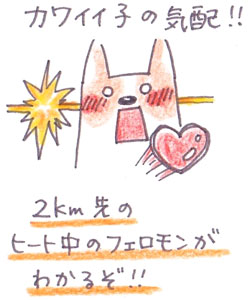 カワイイ子の気配!!
2km先の
ヒート中のフェロモンが
わかるぞ!!